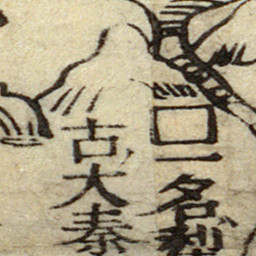 口一名
古大秦